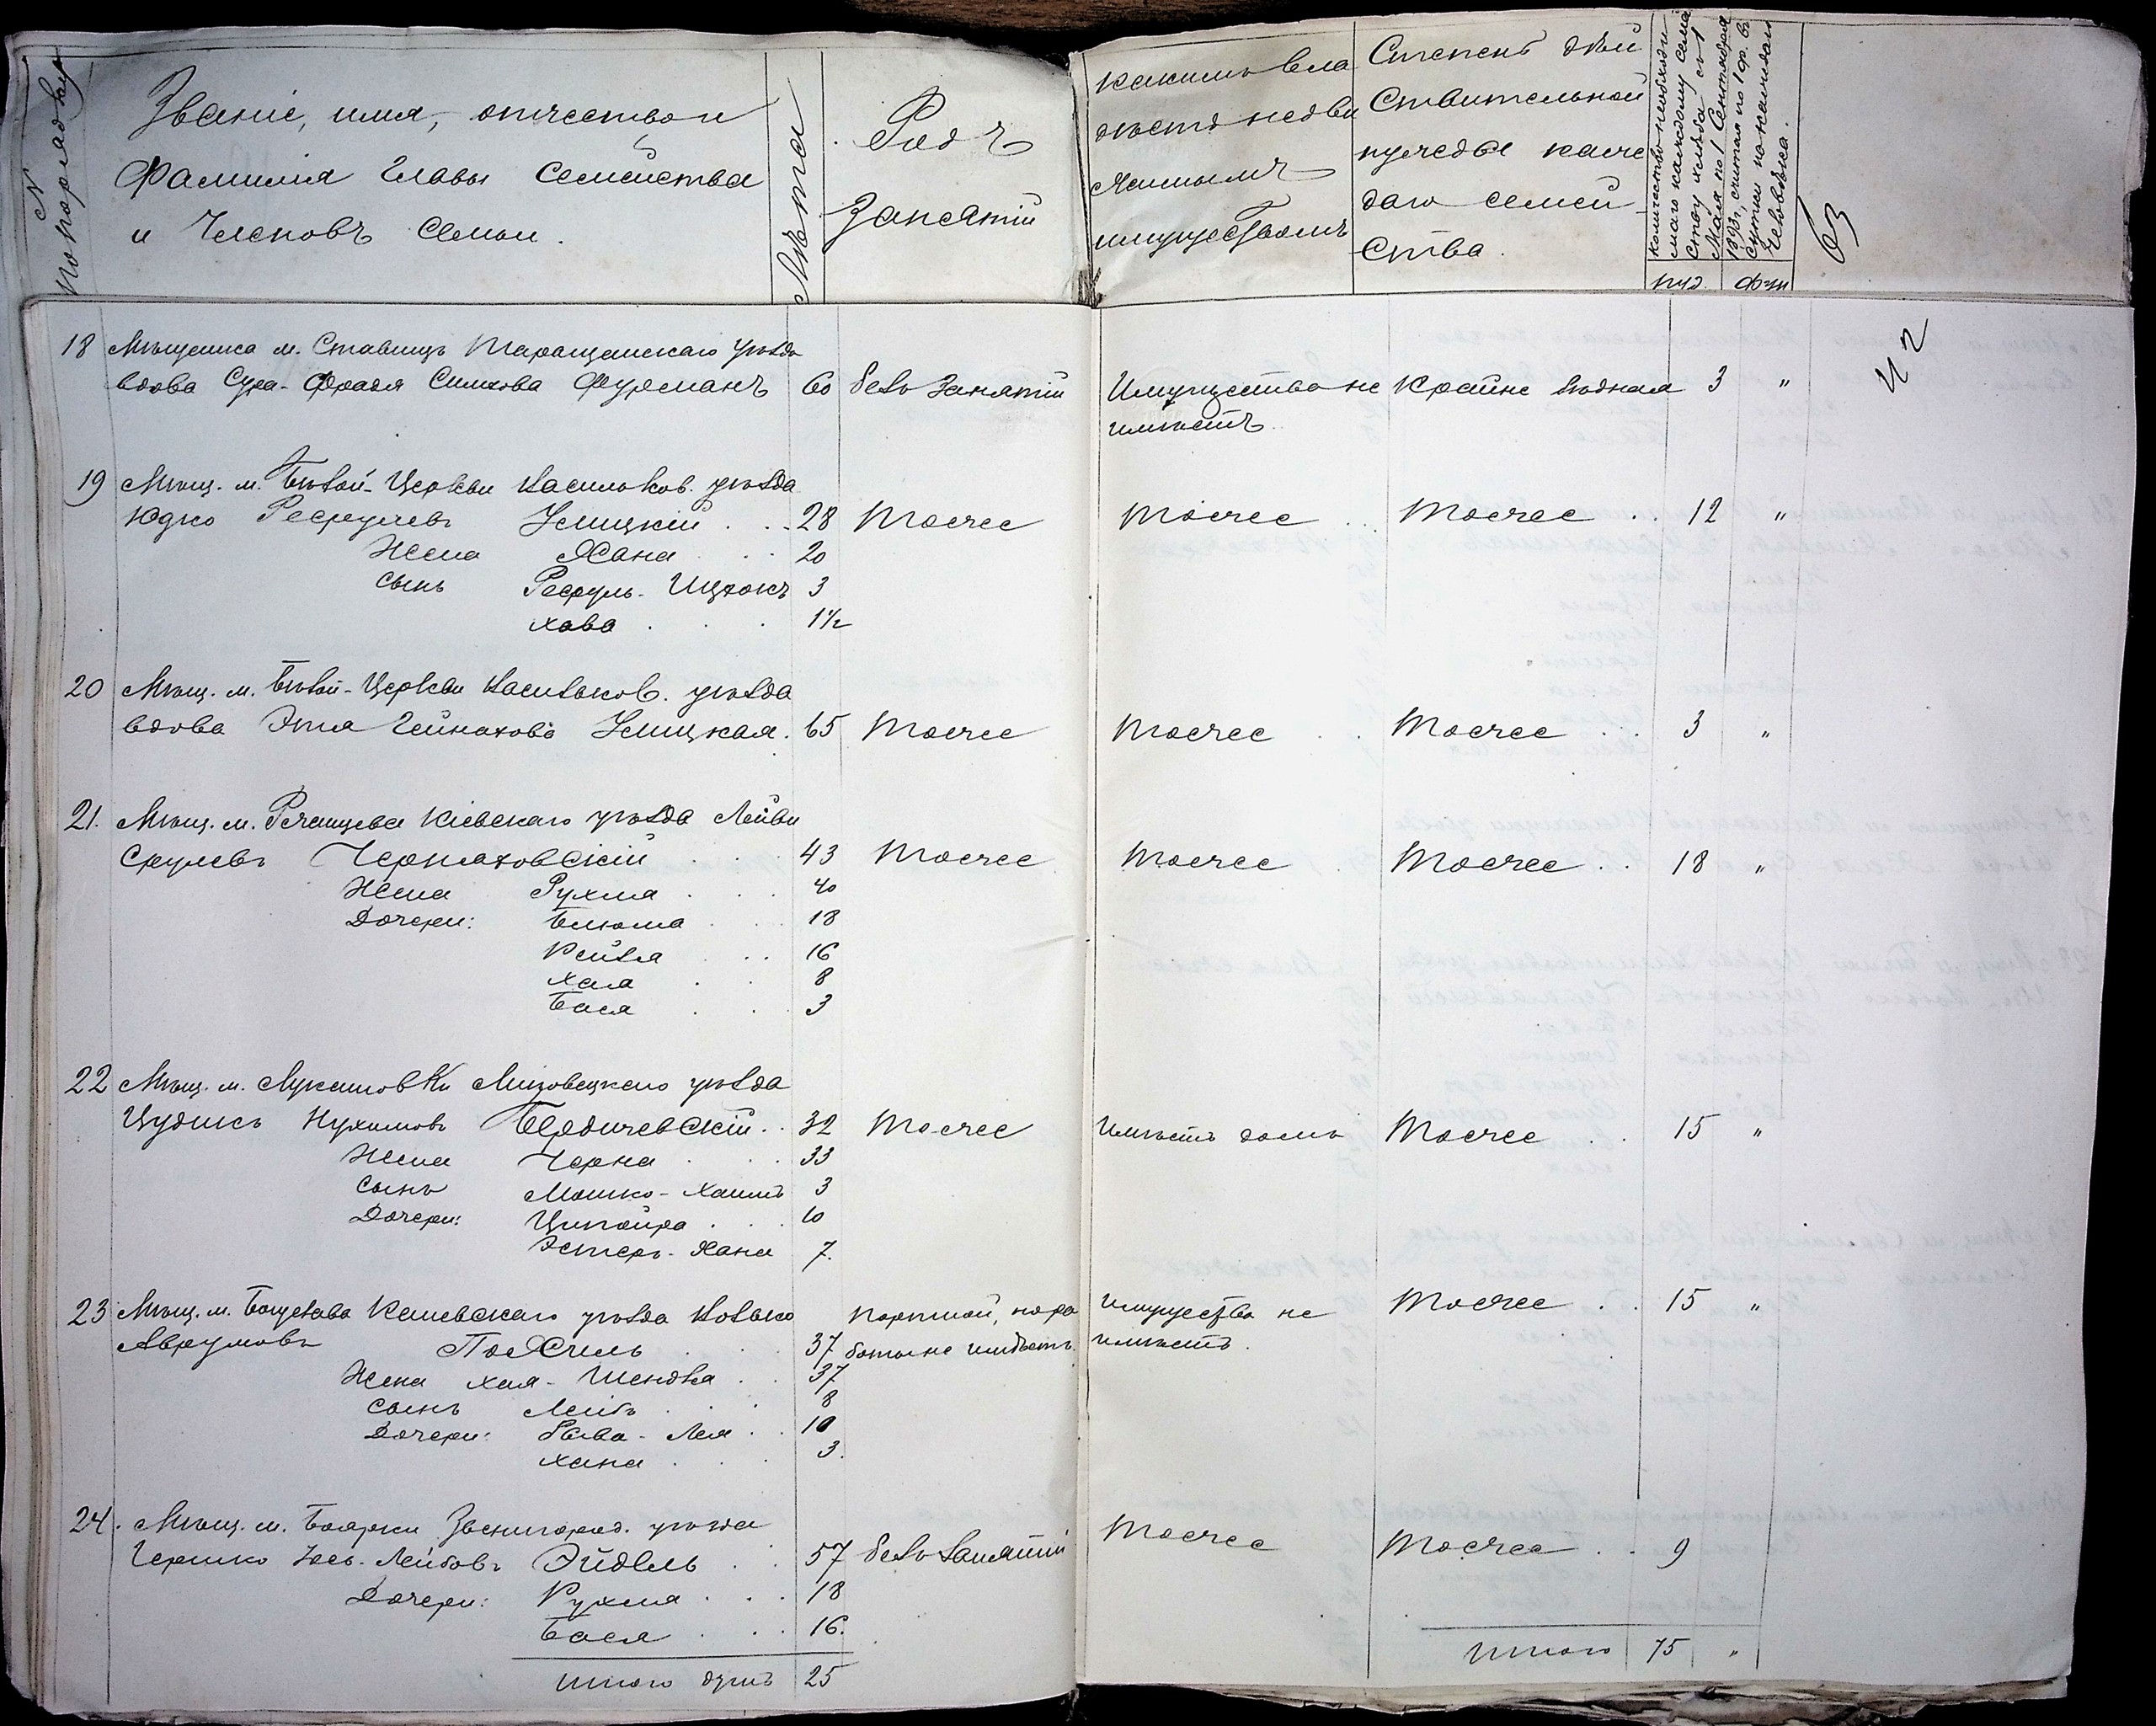 № по порядку
Званіе, имя, отчество и
фамилія Главы Семейства
и Членовъ Семьи.
Лѣта
Родъ
Занятій
какимъ вла
дѣетъ недви
жимымъ
имуществомъ
Степень дѣй
ствительной
нужды каж
даго семей
ства.
количество необходи
маго каждому семей
ству хлѣба съ 1
Мая по 1 Сентября
1893 г., считая по 1 ф. въ
сутки на каждаго
человѣка.
пуд. фун
63
18 Мѣщанка м. Ставищъ Таращанскаго уѣзда
вдова Сура-Фрадя Симхова Фурманъ 60 безъ занятій Имущества не крайне бѣдная 3 "
имѣетъ
19 Мѣщ. м. Бѣлой-Церкви Васильков. уѣзда
Юдко Лейзеровъ Улицкій 28 Тоже Тоже Тоже 12 "
Жена Хана 20
сынъ Ицхокъ 3
Хава 1½
20 Мѣщ. м. Бѣлой-Церкви Васильков. уѣзда
вдова Этя Гейнахова Улицкая 65 Тоже Тоже Тоже 3 "
21. Мѣщ. м. Ржищева Кіевскаго уѣзда Лейви
Срулевъ Черняховскій 43 Тоже Тоже Тоже 18 "
Жена Рухля 40
Дочери: Блюма 18
Рейзя 16
Хая 8
Бася 3
22 Мѣщ. м. Лукашовки Липовецкаго уѣзда
Цудикъ Нухимовъ Бердичевскій 32 Тоже Имѣетъ домъ Тоже 15 "
Жена Черна 33
сынъ Мошко-Хаимъ 3
Дочери: Ципойра 10
Эстеръ-Хана 7.
23 Мѣщ. м. Богуслава Каневскаго уѣзда Волько портной, но ра Имущества не Тоже 15 "
Аврумовъ 37 боты не имѣетъ имѣетъ.
Жена Хая-Шендля 37
сынъ Лейбъ 8
Дочери: Лея 10
Хана 3.
24. Мѣщ. м. Боярки Звенигород. уѣзда
Гершко Іось-Лейбовъ Эйдель 57 безъ занятій Тоже Тоже 9
Дочери: Рухля 18
Бася 16.
Итого душъ 25 Итого 75 "